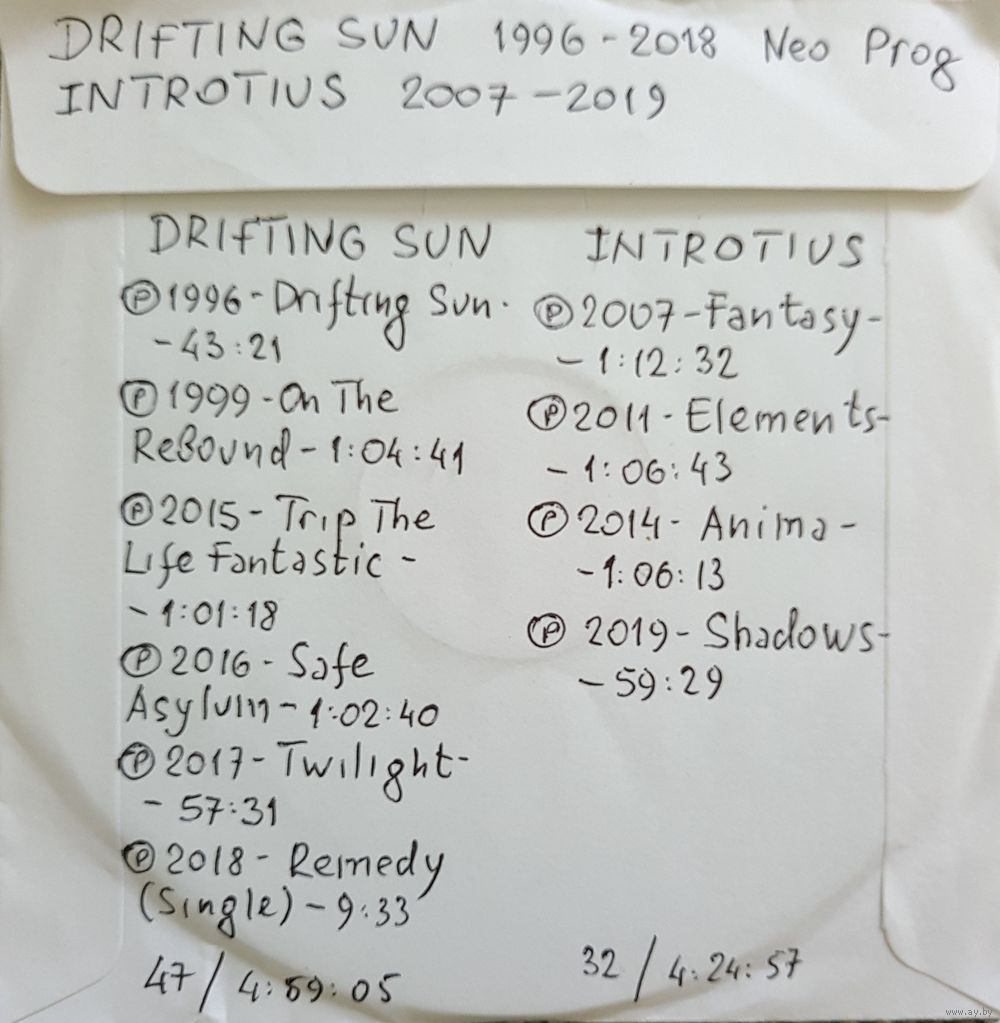 DRIFTING SUN 1996-2018 Neo Prog
INTROTIUS 2007-2019
DRIFTING SUN
Ⓟ1996-Drifting Sun-
-43:21
Ⓟ1999-On The
ReBound-1:04:41
Ⓟ2015-Trip The
Life Fantastic-
-1:01:18
Ⓟ2016-Safe
Asylum-1:02:40
Ⓟ2017-Twilight-
-57:31
Ⓟ2018-Remedy
(Single)-9:33
47/4:59:05
INTROTIUS
Ⓟ2007-Fantasy-
-1:12:32
Ⓟ2011-Elements-
-1:06:43
Ⓟ2014-Anima-
-1:06:13
Ⓟ2019-Shadows-
-59:29
32/4:24:57
www.ay.by